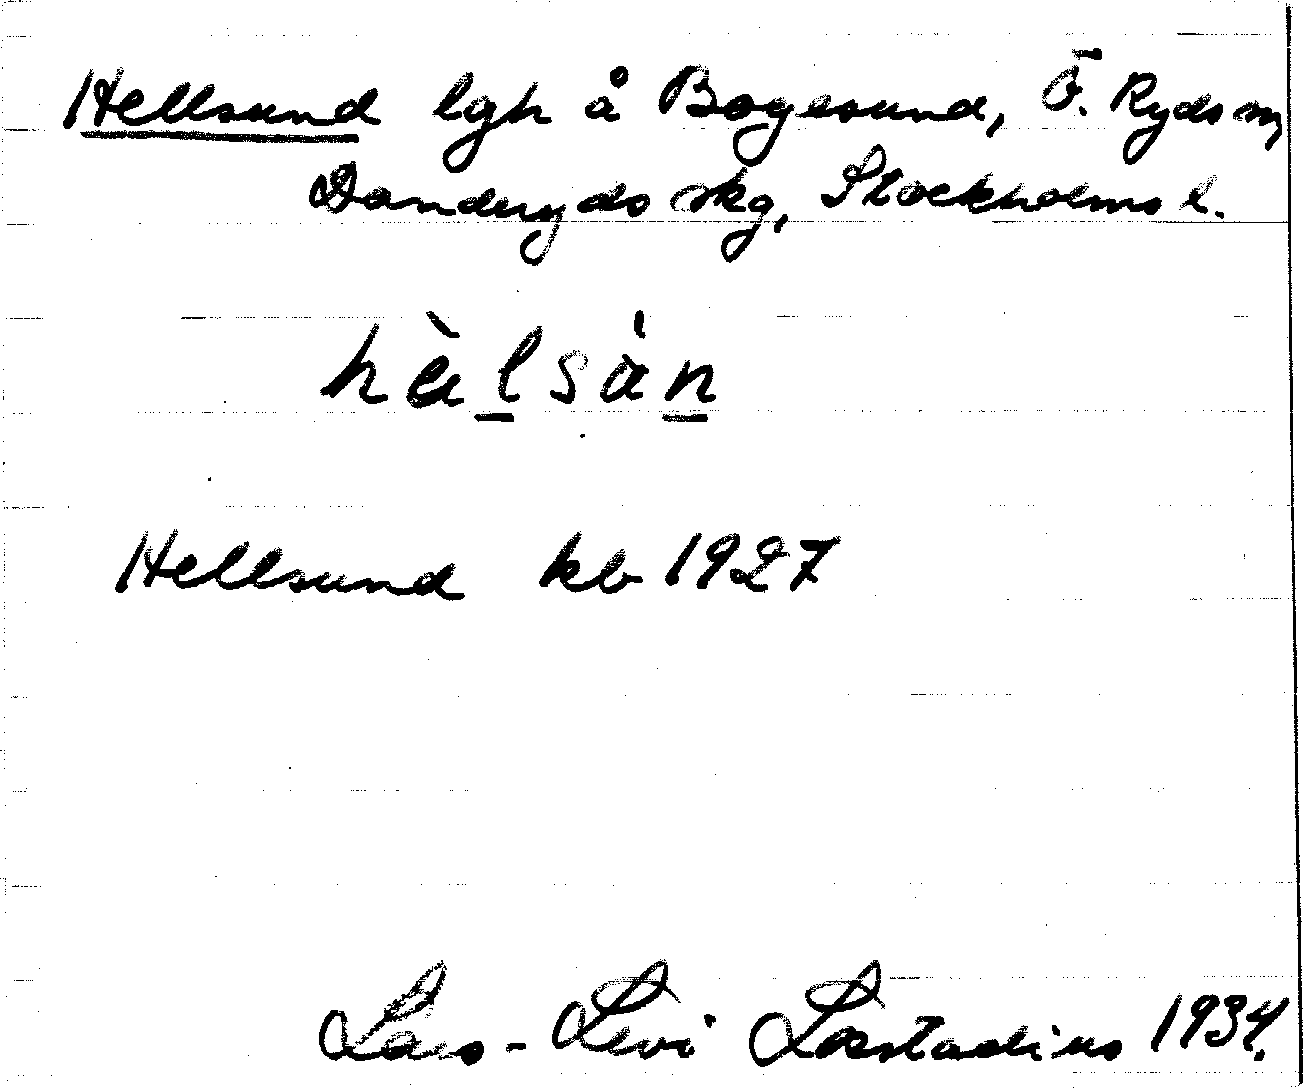 Hellsund lgh å Bogesund, Ö. Ryds sn,
Danderyds skg, Stockholms l.
hälsán
Hellsund kb 1927
Lars-Levi Læstadius 1934.